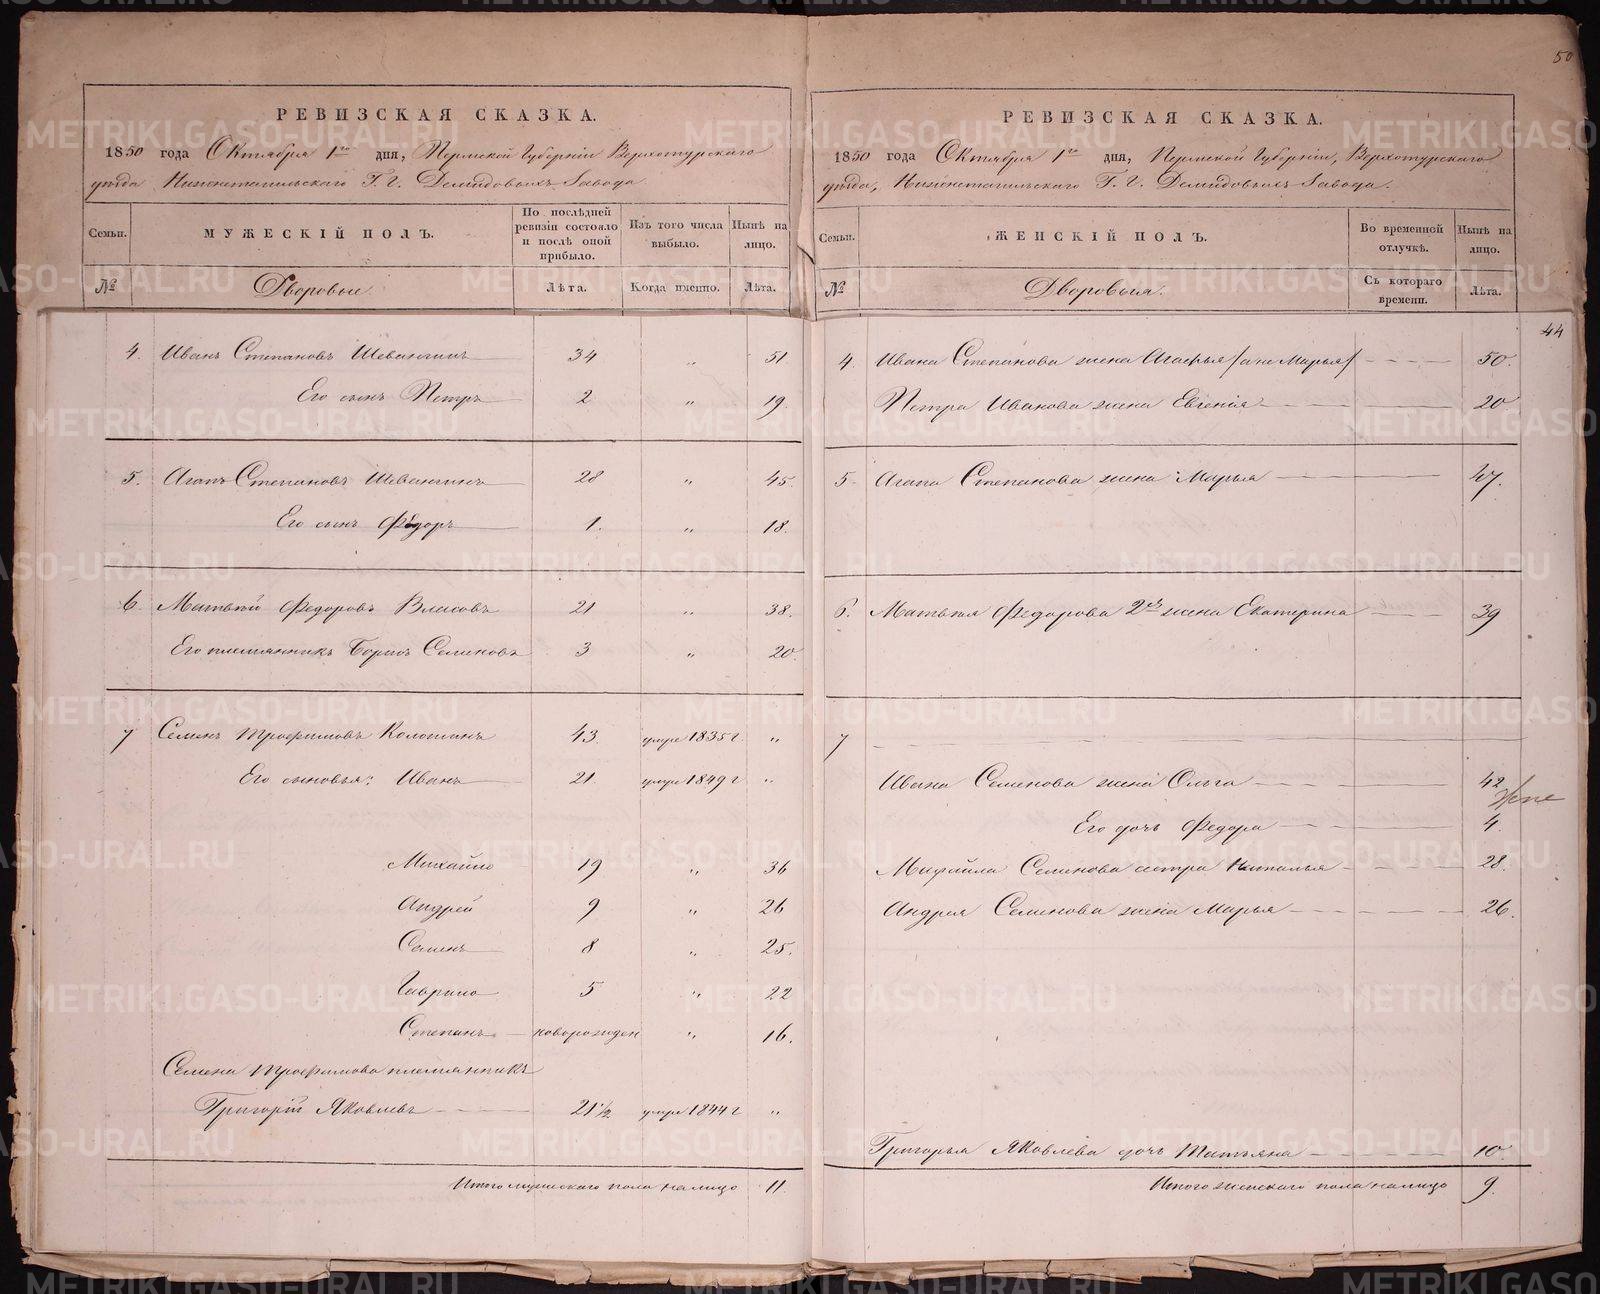 50
РЕВИЗСКАЯ СКАЗКА.
1850 года Октября 1го дня, Пермской Губерніи Верхотурскаго
уѣзда Нижнетагильскаго Г. Г. Демидовыхъ Завода
Семьи. МУЖЕСКІЙ ПОЛЪ. По послѣдней ревизіи состояло и послѣ оной прибыло. Изъ того числа выбыло. Нынѣ на лицо.
№ Дворовые Лѣта. Когда именно. Лѣта.
4. Иванъ Степановъ 34 „ 51.
Его сынъ Петръ 2 „ 19.
5. Агапъ Степановъ 28 „ 45.
Его сынъ Ѳедоръ 1. „ 18.
6. Матвѣй Федоровъ Власовъ 21 „ 38.
Его племянникъ Борисъ Семеновъ 3 „ 20.
7 Семенъ Трофимовъ 43. умре 1835 г. „
Его сыновья: Иванъ 21. умре 1849 г „
Михайло 19 „ 36
Андрей 9 „ 26
Семенъ 8 „ 25.
Гаврило 5 „ 22
Степанъ новорожден „ 16.
Семена Трофимова племянникъ
Григорій Яковлевъ 21 1/2 умре 1844 г „
Итого мужескаго пола на лицо 11.
РЕВИЗСКАЯ СКАЗКА.
1850 года Октября 1го дня, Пермской Губерніи, Верхотурскаго
уѣзда, Нижнетагильскаго Г. Г. Демидовыхъ Завода.
Семьи. ЖЕНСКІЙ ПОЛЪ. Во временной отлучкѣ. Нынѣ на лицо.
№ Дворовыя. Съ котораго времени. Лѣта.
44
4. Ивана Степанова жена Агафья /а не Марья/ 50.
Петра Иванова жена Евгенія 20.
5 Агапа Степанова жена Марья 47.
6. Матвѣя Федорова 2я жена Екатерина 39
7
Ивана Семенова жена Ольга 42
Его дочь Федора 4.
Михайла Семенова сестра Наталья 28.
Андрея Семенова жена Марья 26.
Григорья Яковлева дочь Татьяна 10.
Итого женскаго пола на лицо 9.
METRIKI.GASO-URAL.RU